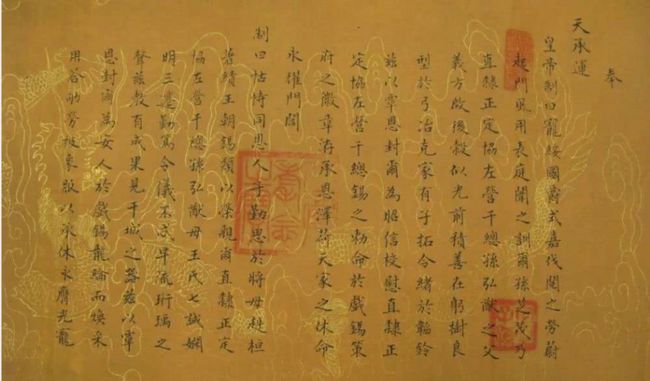 奉
天承運
皇帝制曰寵綏國爵式嘉伐閱之勞蔚
起門風用表庭闈之訓爾孫芝茂乃
直隸正定協左營千總孫弘猷之父
義方啟後穀似光前積善在躬樹良
型於弓冶克家有子拓令緒於韜鈐
茲以覃恩封爾為昭信校尉直隸正
定協左營千總錫之勅命於戲錫策
府之徽章洊承恩澤荷天家之休命
永耀門閭
制曰怙恃同恩人子勤思於將母赳桓
著績王朝錫類以榮親爾直隸正定
協左營千總孫弘猷母王氏七誡嫺
明三遷勤篤令儀不忒早流珩瑀之
聲慈教有成果見干城之器茲以覃
恩封爾為安人於戲錫龍綸而煥采
用答劬勞被象服以承休永膺光寵